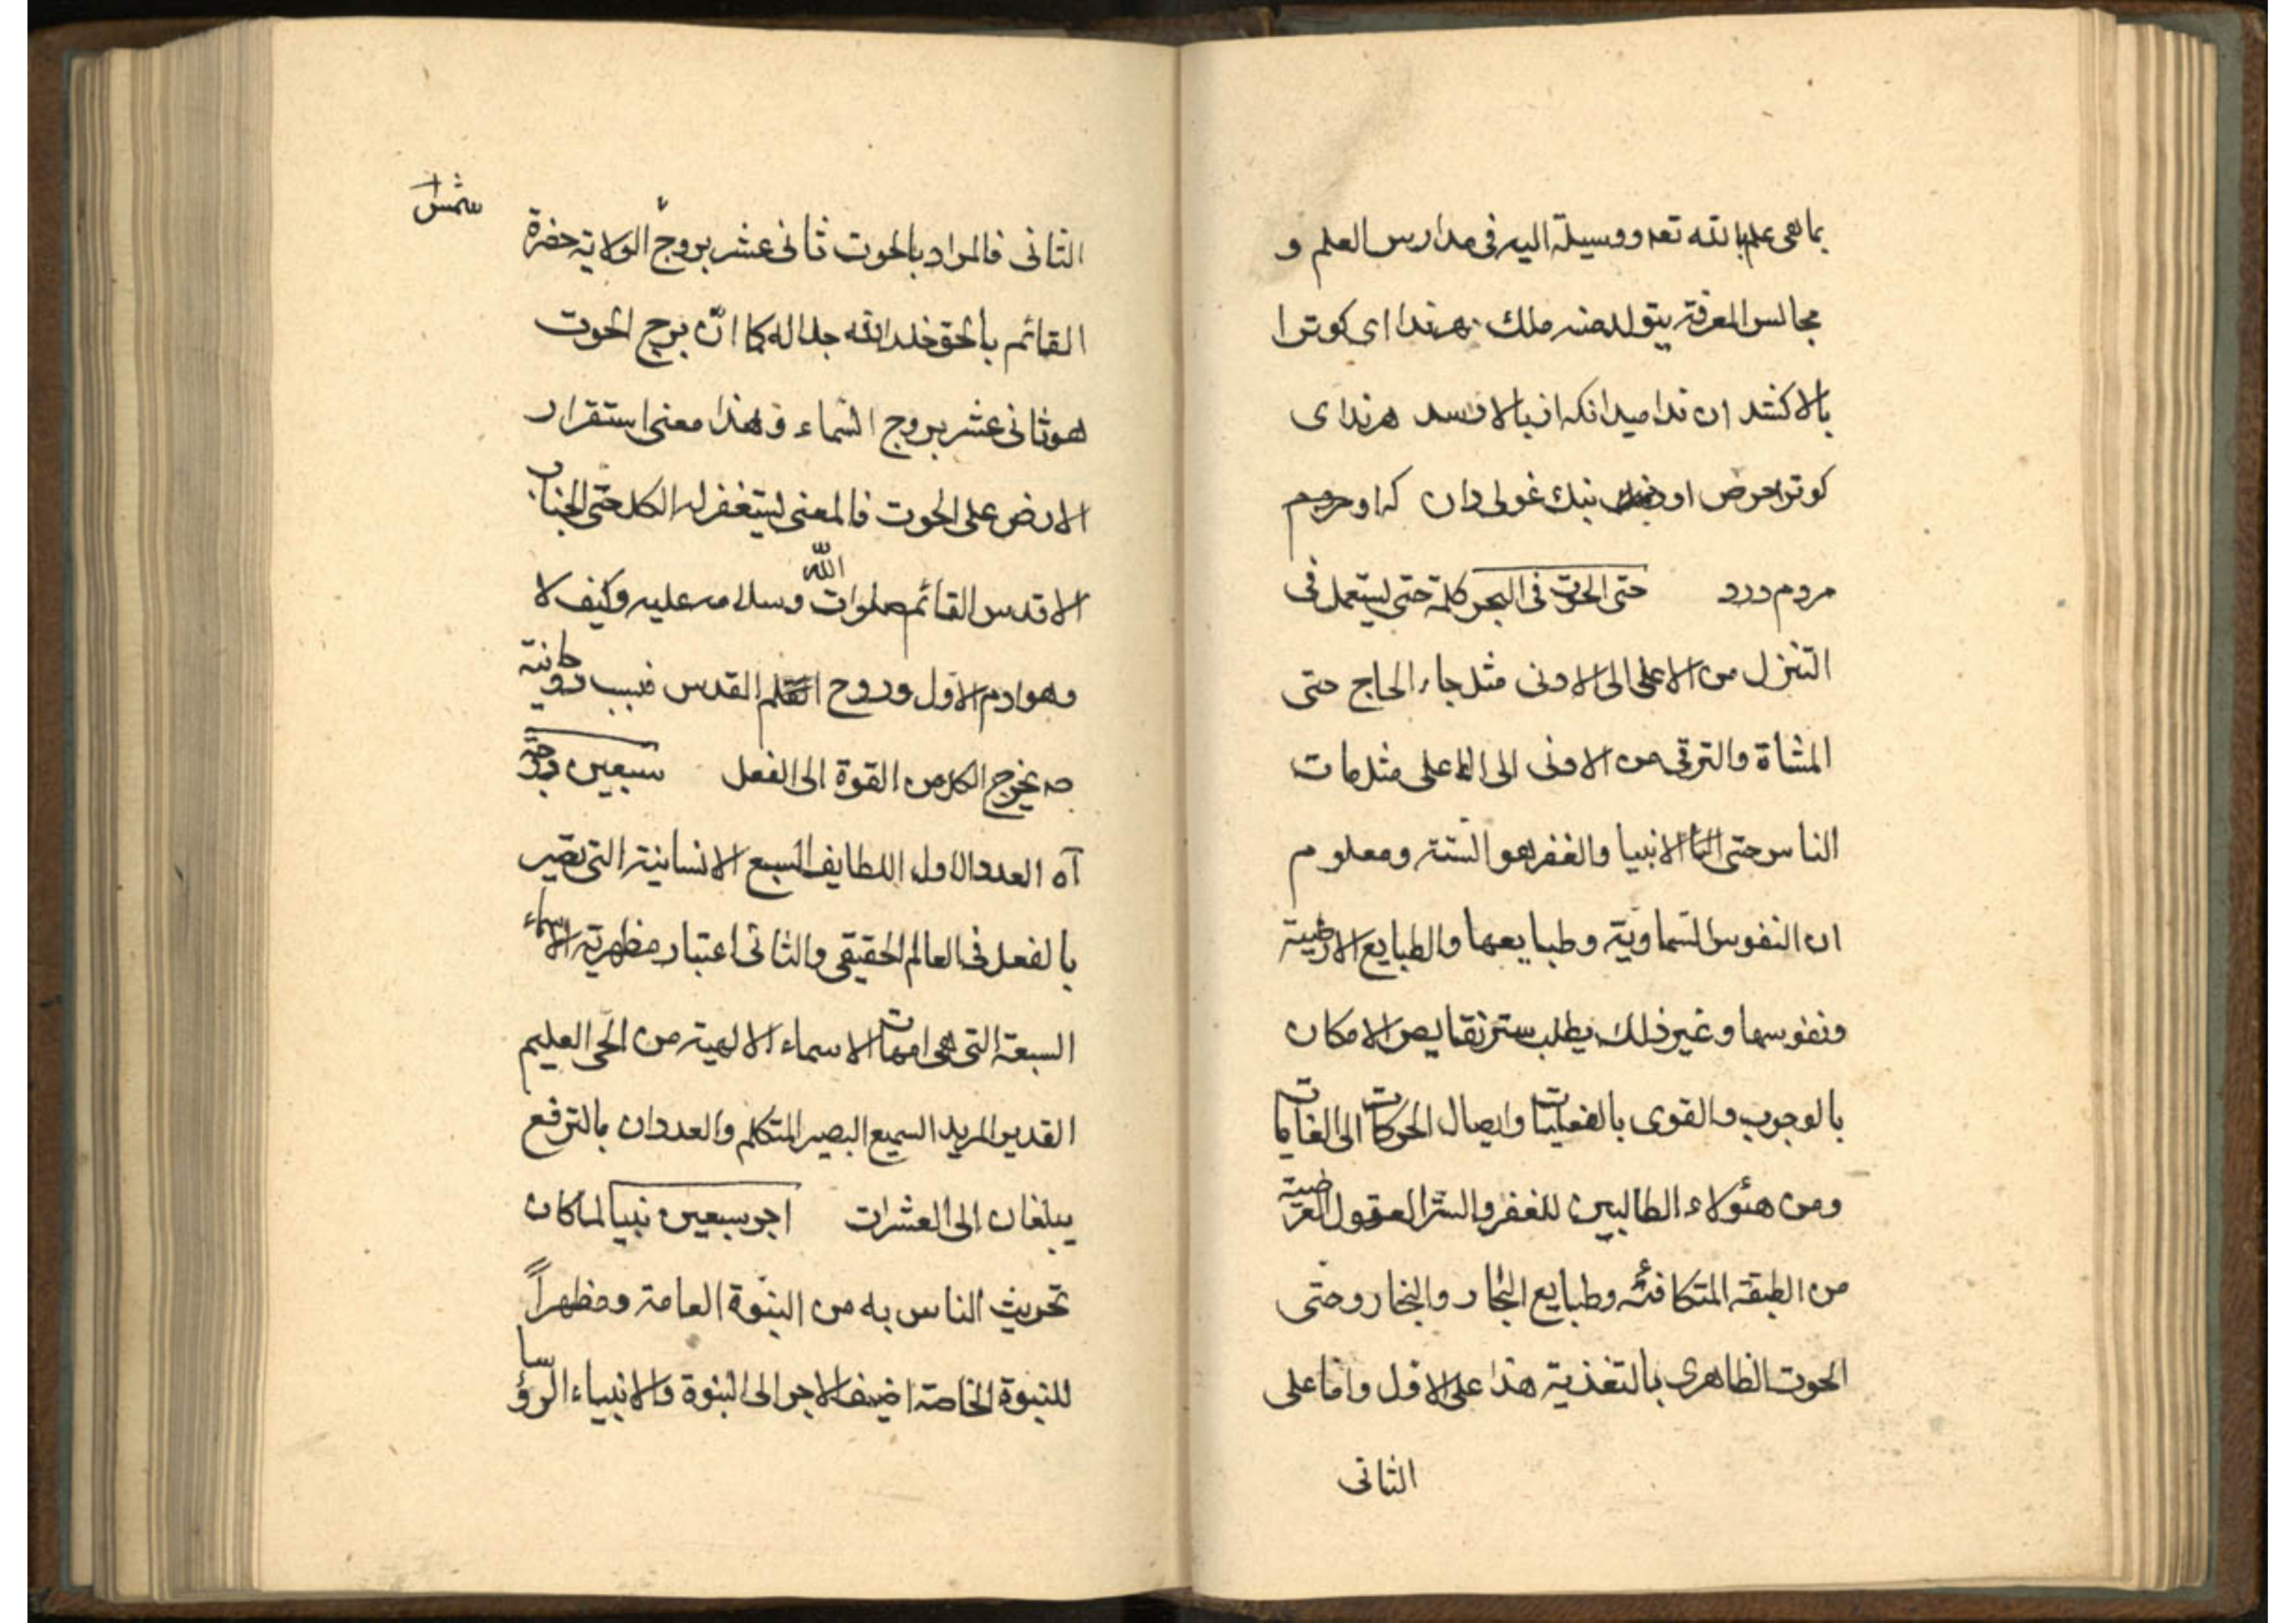 بما هی علم بالله تعه ووسیلة الیه فی مدارس العلم و
مجالس المعرفة یتولد منه ملك هر ندا ای کو ترا
بالا کشد ان ندا میدانکه از بالا رسد هر ندای
کو ترا حرص اورد بنك غولی دان که او مردم
مردم درد حتی الحوت فی البحر کلمة حتی یستعمل فی
التنزل من الاعلی الی الادنی مثل جاء الحاج حتی
المشاة والترقی من الادنی الی الاعلی مثل مات
الناس حتی الانبیا والغفر هو الستة ومعلوم
ان النفوس السماویة وطبایعها والطبایع الارضیة
ونفوسها وغیر ذلك یطلب ستر نقایص الامکان
بالوجوب والقوی بالفعلیات وایصال الحرکات الی الغایات
ومن هئولاء الطالبین للغفر والستر العقول العرضیة
من الطبقة المتکافئة وطبایع البحار والبخار وحتی
الحوت الظاهری بالتغذیة هذا علی الاول واما علی
الثانی
شمس
الثانی فالمراد بالحوت ثانی عشر بروج الولایة حضرة
القائم بالحق خلد الله جلاله کما ان برج الحوت
هو ثانی عشر بروج السماء وهذا معنی استقرار
الارض علی الحوت فالمعنی یستغفر له الکل حتی الجناب
الاقدس القائم صلوات الله وسلامه علیه وکیف لا
وهو ادم الاول وروح القدس فبب روحانیة
صه یخرج الکل من القوة الی الفعل سبعین درجة
آه العدد الاول اللطایف السبع الانسانیة التی تصیر
بالفعل فی العالم الحقیقی والثانی اعتبار مظهریة الاسماء
السبعة التی هی امهات الاسماء الالهیة من الحی العلیم
القدیر المرید السمیع البصیر المتکلم والعددان بالترفع
یبلغان الی العشرات اجر سبعین نبیا لما کان
تحریث الناس به من النبوة العامة ومظهراً
للنبوة الخاصة اضیف الاجر الی النبوة والانبیاء الرؤسا